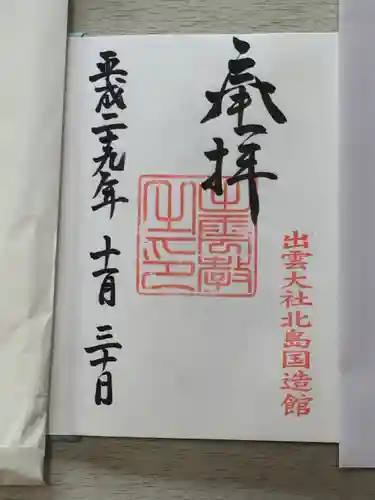 奉拝
出雲教
之印
出雲大社北島国造館
平成二十九年 十一月 三十日